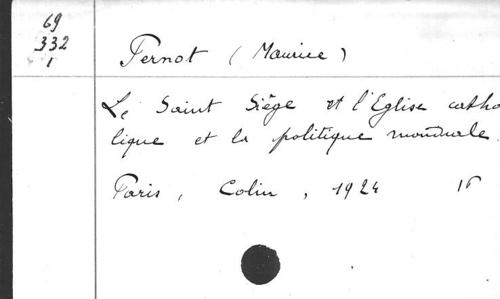 69
332
1
Pernot (Maurice)
Le Saint Siège et l'Eglise catho
lique et la politique mondiale.
Paris, Colin, 1924